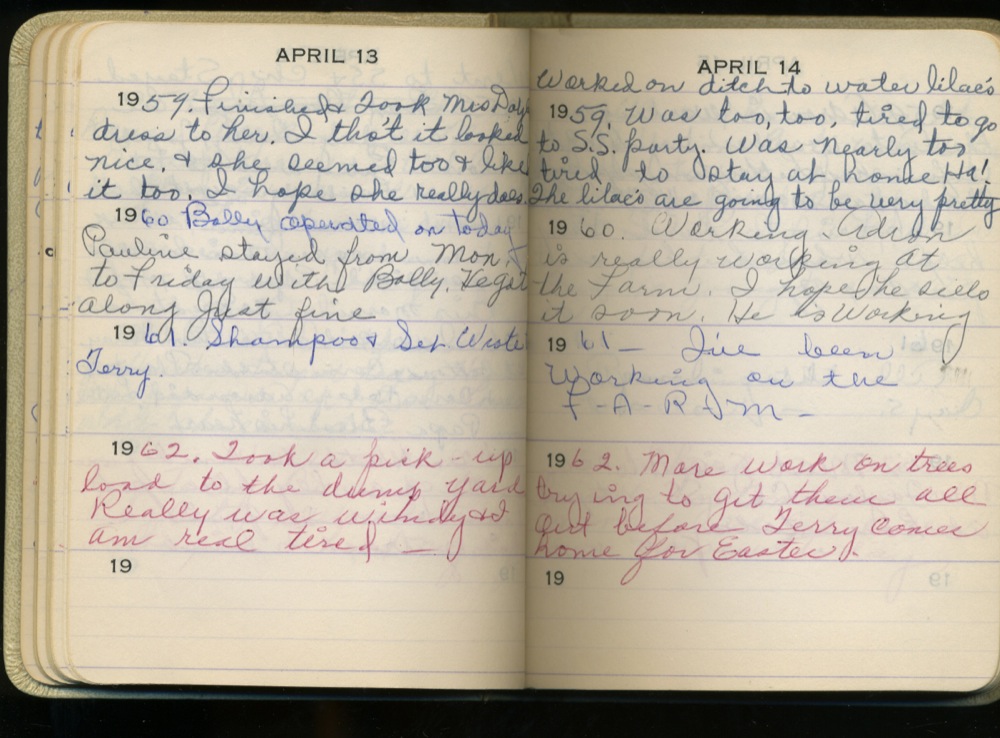 APRIL 13
1959. Finished & Took Mrs Daly
dress to her. I tho't it looked
nice. & she seemed too & like
it too. I hope she really does.
1960 Bolly operated on today
Pauline stayed from Mon,
to Friday with Bolly. He got
along Just fine
1961. Shampoo & Set Wrote
Terry.
1962. Took a pick-up
load to the dump yard
Really was windy & I
am real tired —
19
APRIL 14
Worked on ditch to water lilacs
1959. Was too, too, tired to go
to S.S. party. Was nearly too
tired to stay at home Ha!
The lilacs are going to be very pretty
1960. Working. Adron
is really working at
the Farm. I hope he sells
it soon. He is Working
1961 — I've been
Working on the
F-A-R-M-
1962. More work on trees
trying to get them all
out before Terry comes
home for Easter.
19